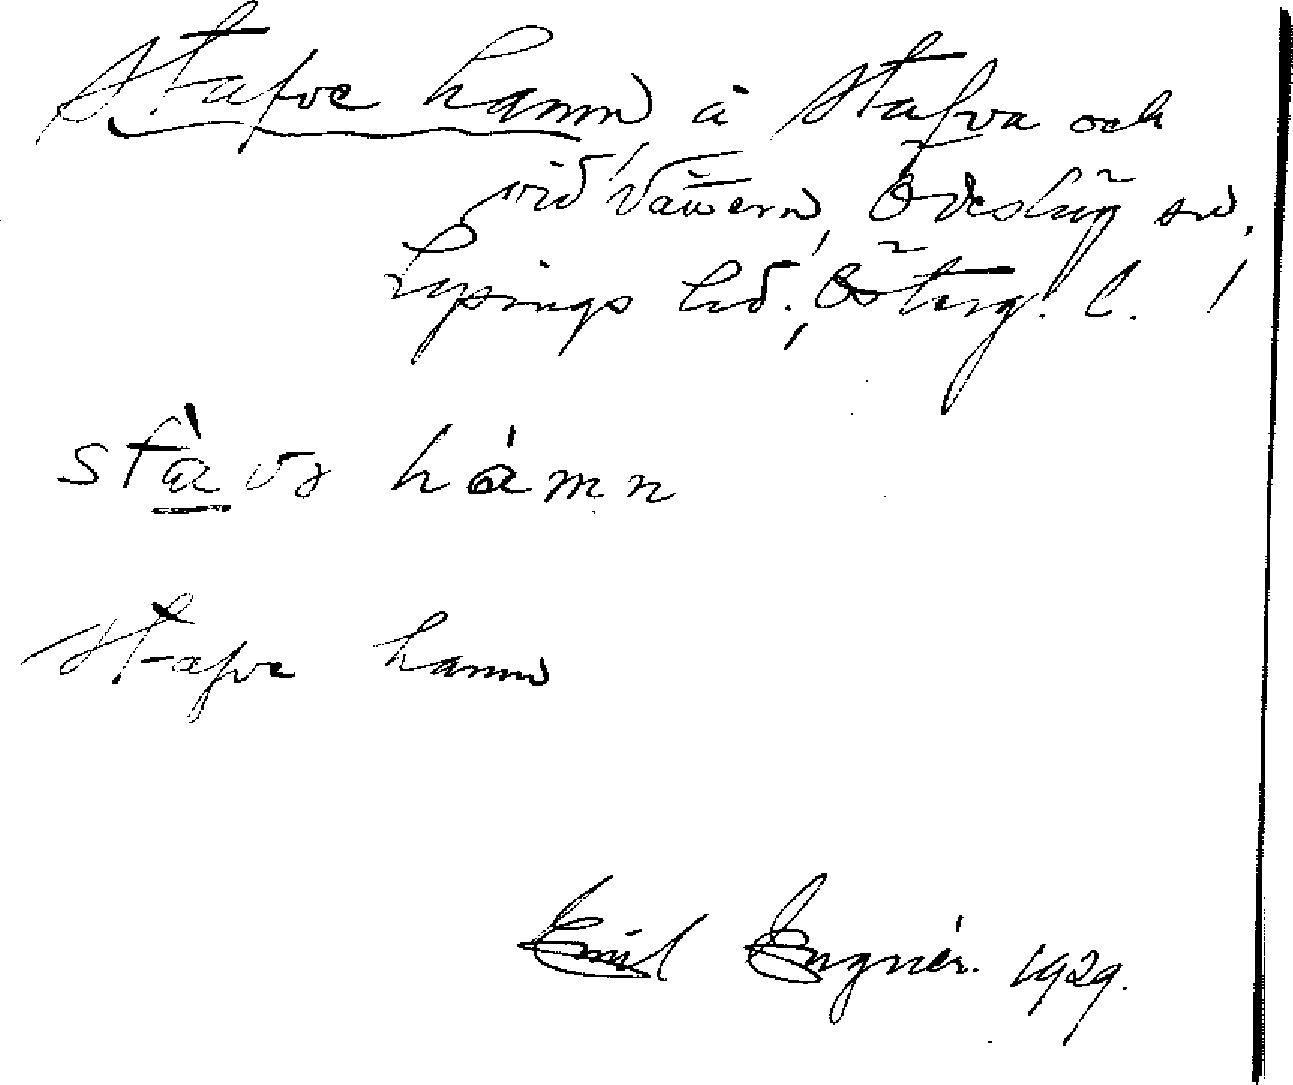 Stafve hamn å Stafva och
vid Vättern, Ödeshög sn,
Lysings hd., Österg. l.
stàvə hámn
Stafve hamn
Emil Engnér. 1929.